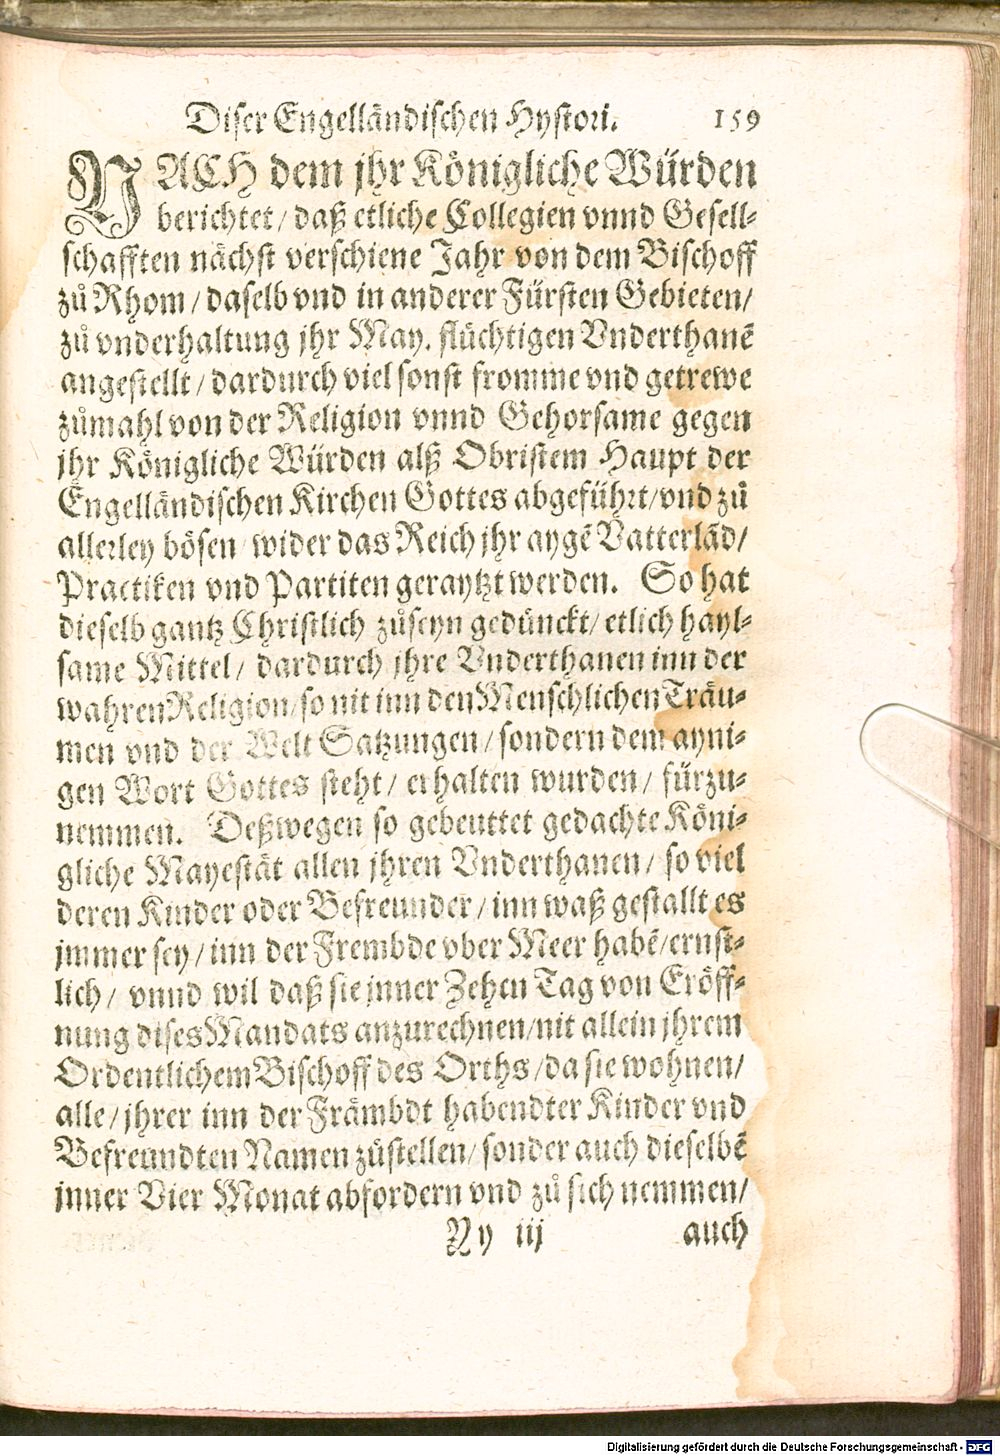 Diser Engelländischen Hystori. 159
NACH dem jhr Königliche Würden
berichtet / daß etliche Collegien vnnd Gesell-
schafften nächst verschiene Jahr von dem Bischoff
zů Rhom / daselb vnd in anderer Fürsten Gebieten /
zů vnderhaltung jhr May. flüchtigen Vnderthanẽ
angestellt / dardurch viel sonst fromme vnd getrewe
zůmahl von der Religion vnnd Gehorsame gegen
jhr Königliche Würden alß Obristem Haupt der
Engelländischen Kirchen Gottes abgeführt / vnd zů
allerley bösen wider das Reich jhr aygẽ Vatterlãd /
Practiken vnd Partiten geraytzt werden. So hat
dieselb gantz Christlich zůseyn gedünckt / etlich hayl-
same Mittel / dardurch jhre Vnderthanen inn der
wahren Religion / so nit inn den Menschlichen Träu-
men vnd der Welt Satzungen / sondern dem ayni-
gen Wort Gottes steht / erhalten wurden / fürzu-
nemmen. Deßwegen so gebeuttet gedachte Köni-
gliche Mayestät allen jhren Vnderthanen / so viel
deren Kinder oder Befreunder / inn waß gestallt es
jmmer sey / inn der Frembde vber Meer habẽ / ernst-
lich / vnnd wil daß sie jnner Zehen Tag von Eröff-
nung dises Mandats anzurechnen / nit allein jhrem
Ordentlichem Bischoff des Orths / da sie wohnen /
alle / jhrer inn der Främbdt habendter Kinder vnd
Befreundten Namen zůstellen / sonder auch dieselbẽ
jnner Vier Monat abfordern vnd zů sich nemmen /
Yy iij auch
Digitalisierung gefördert durch die Deutsche Forschungsgemeinschaft - DFG